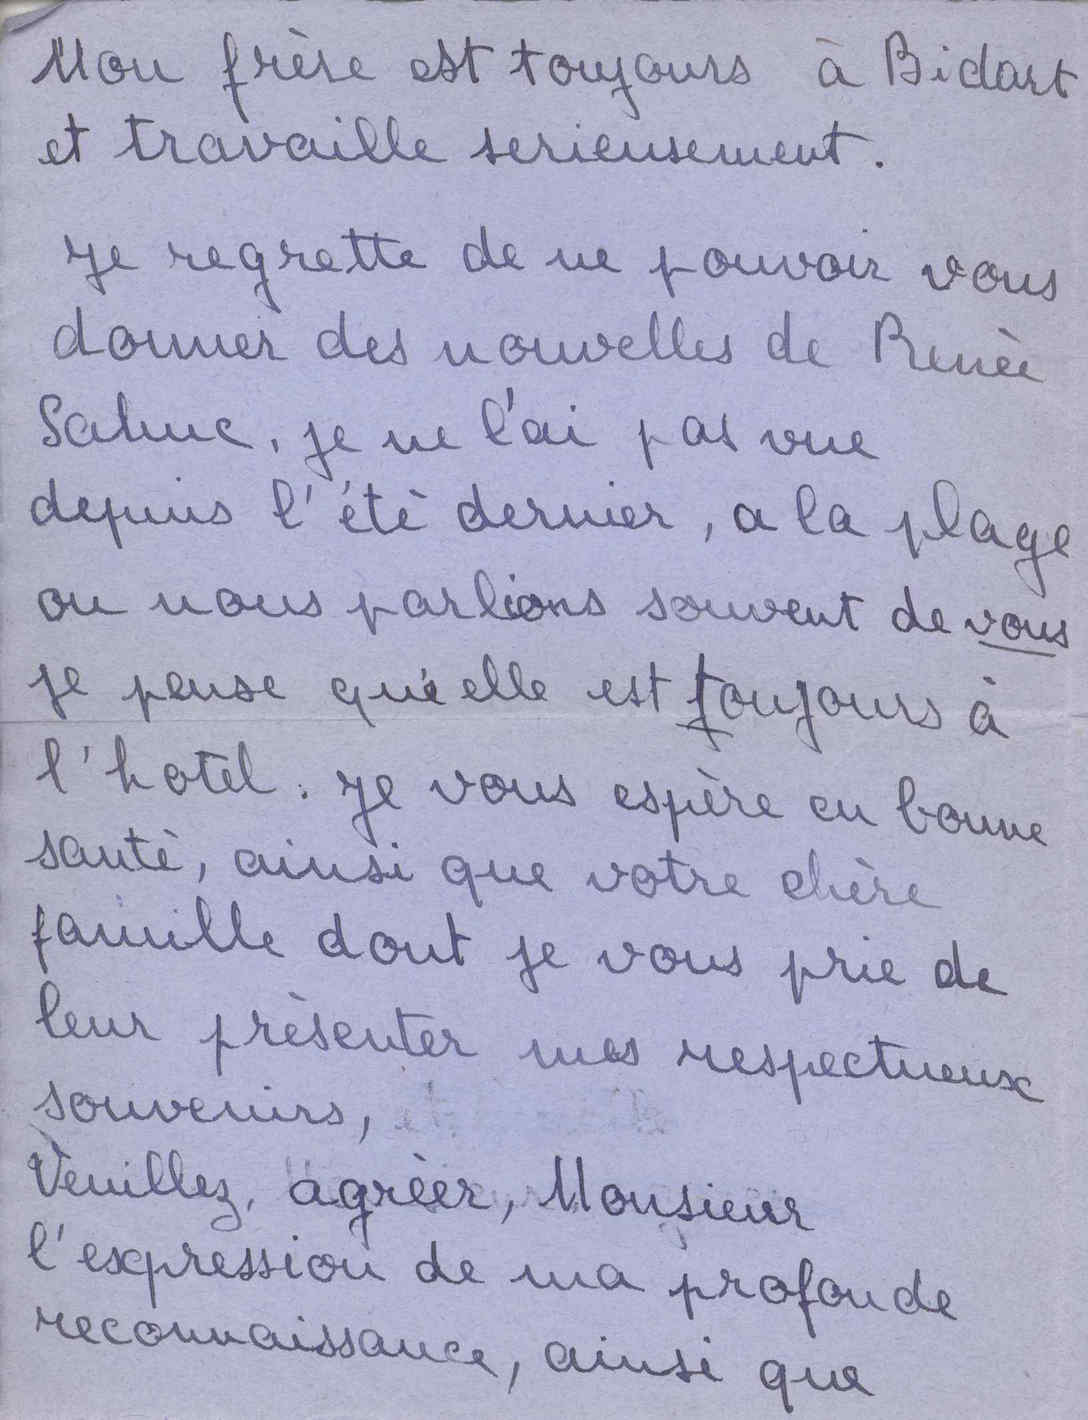 Mon frère est toujours à Bidart
et travaille serieusement.
Je regrette de ne pouvoir vous
donner des nouvelles de Renèe
je ne l'ai pas vue
depuis l'étè dernier, a la plage
ou nous parlions souvent de vous
je pense que elle est toujours à
l'hotel. Je vous espère en bonne
santè, ainsi que votre chère
famille dont je vous prie de
leur prèsenter mes respectueux
souvenirs,
Veuillez, agrèer, Monsieur
l'expression de ma profonde
reconnaissance, ainsi que